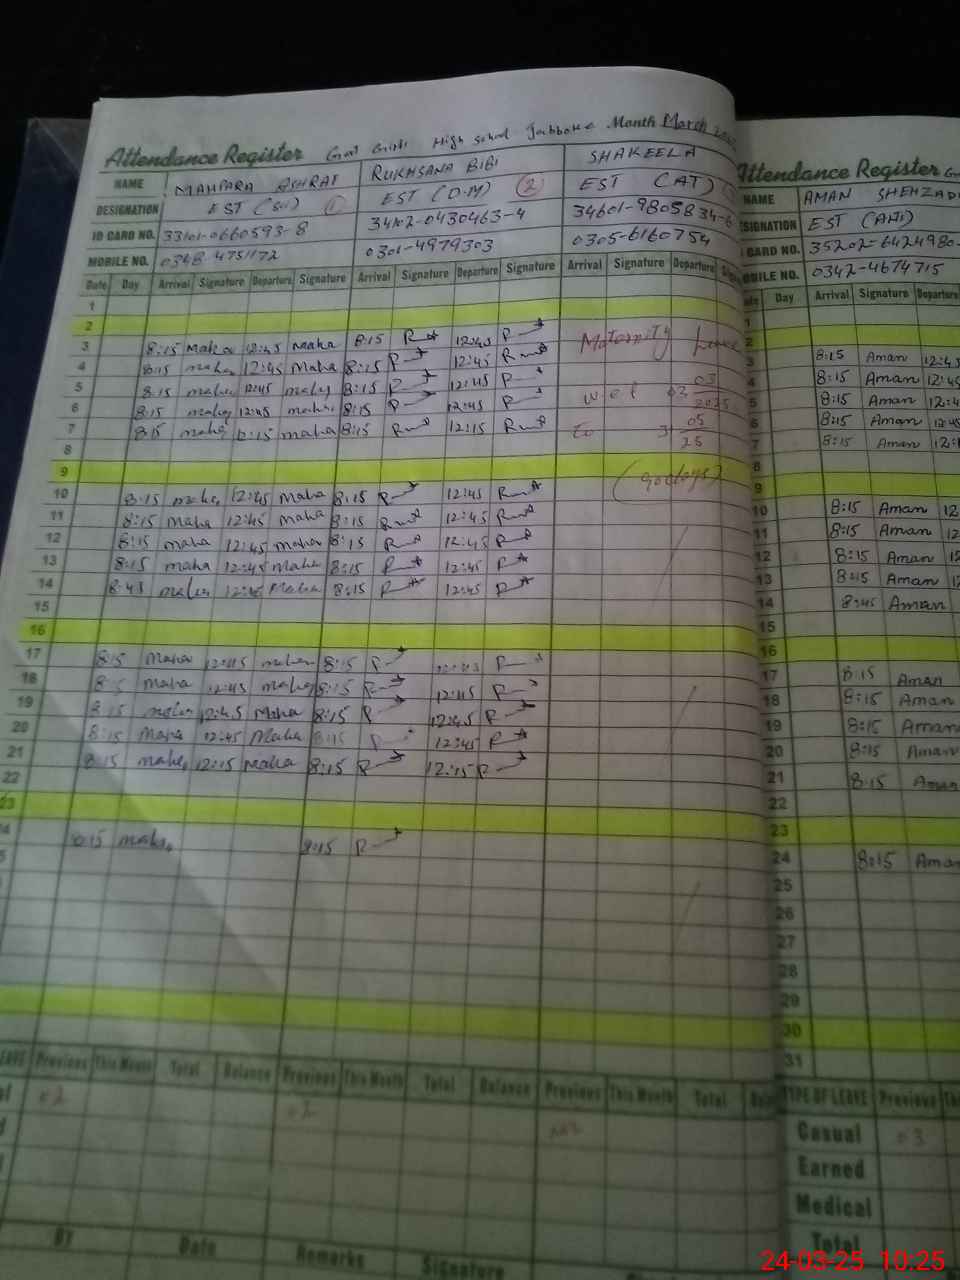 Attendance Register Govt Girls High School Jabboke Month March
NAME MAHPARA ASHRAF RUKHSANA BIBI SHAKEELA
DESIGNATION EST (Sci) 1 EST (D.M) 2 EST (AT)
ID CARD NO. 33101-0660593-8 34102-0430463-4 34601-9805834-6
MOBILE NO. 0301-4979303 0305-6160754
Date Day Arrival Signature Departure Signature Arrival Signature Departure Signature Arrival Signature Departure
1
2
3 8:15 Maha 12:45 Maha 8:15 R 12:45 R Maternity Leave
4 8:15 maha 12:45 Maha 8:15 R 12:45 R
5 8:15 maha 12:45 maha 8:15 R 12:45 R w.e.f 03 03 2025
6 8:15 maha 12:45 maha 8:15 R 12:45 R
7 8:15 maha 12:15 maha 8:15 R 12:15 R To 31 05 25
8
9 (90 days)
10 8:15 maha 12:45 Maha 8:15 R 12:45 R
11 8:15 Maha 12:45 Maha 8:15 R 12:45 R
12 8:15 maha 12:45 maha 8:15 R 12:45 R
13 8:15 maha 12:45 Maha 8:15 R 12:45 R
14 8:45 maha Maha 8:15 R 12:45 R
15
16
17 8:15 Maha 12:45 maha 8:15 R R
18 8:15 Maha 12:45 maha 8:15 R 12:45 R
19 8:15 maha 12:45 Maha 8:15 R 12:45 R
20 8:15 Maha 12:45 Maha 8:15 R 12:45 R
21 8:15 maha 12:15 Maha 8:15 R 12:15 R
22
23
8:15 maha 8:15 R
Previous This Month Total Balance Previous This Month Total Balance Previous This Month Total
02 02
By Date Remarks Signature
Attendance Register
NAME AMAN SHEHZADI
DESIGNATION EST (AHI)
ID CARD NO. 35202-6424980-
MOBILE NO. 0342-4674715
Day Arrival Signature Departure
1
2
3 8:15 Aman 12:45
4 8:15 Aman 12:45
5 8:15 Aman 12:4
6 8:15 Aman 12:45
7 8:15 Aman 12:
8
9
10 8:15 Aman 12
11 8:15 Aman 12
12 8:15 Aman 12
13 8:15 Aman 12
14 8:45 Aman
15
16
17 8:15 Aman
18 8:15 Aman
19 8:15 Aman
20 8:15 Aman
21 8:15 Aman
22
23
24 8:15 Aman
25
26
27
28
29
30
31
TYPE OF LEAVE Previous
Casual 03
Earned
Medical
Total
24-03-25 10:25